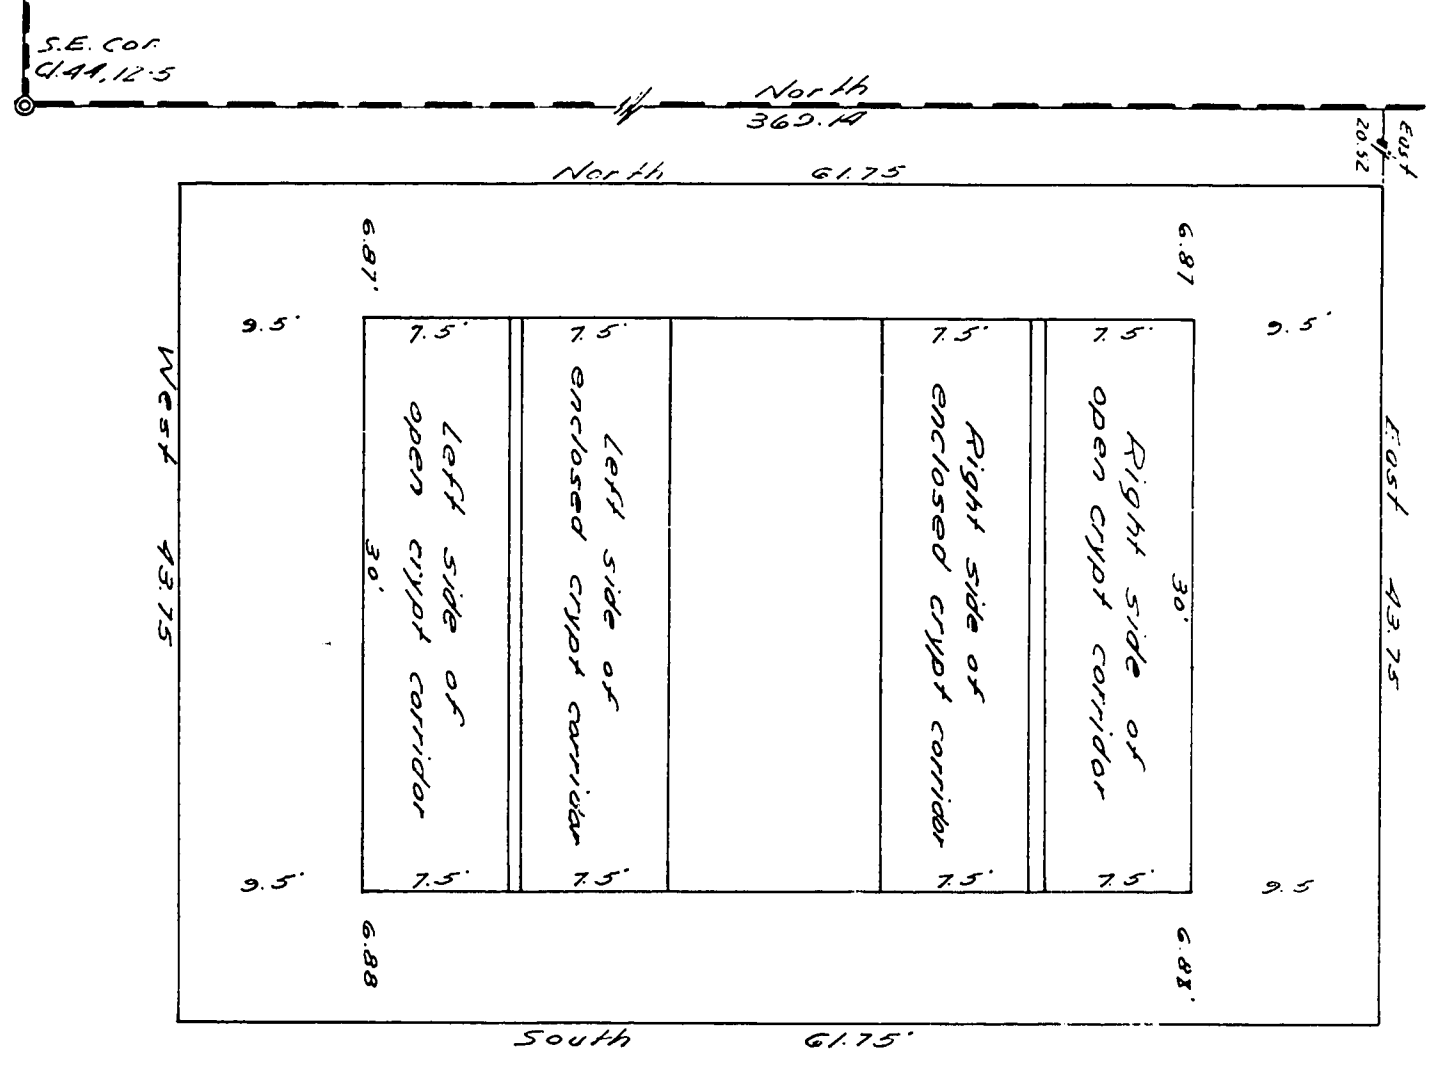 S.E. Cor.
Cl.44, 12-5
North
East
20.52
North 61.75
6.87'
6.87
9.5'
7.5'
7.5'
7.5'
7.5'
9.5'
West 43.75
Left side of
open crypt corridor
30'
Left side of
enclosed crypt corridor
Right side of
enclosed crypt corridor
Right side of
open crypt corridor
30'
East 43.75
9.5'
7.5'
7.5'
7.5'
7.5'
9.5
6.88
6.88'
South 61.75'